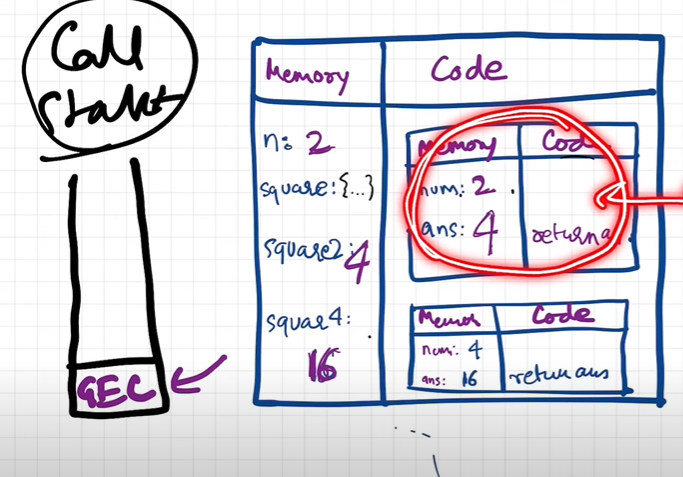 Call
Stakt
GEC
Memory
Code
n: 2
square:{...}
square2: 4
squar4:
16
Memory
Cod
num: 2
ans: 4
return a
Memor
Code
num: 4
ans: 16
return ans